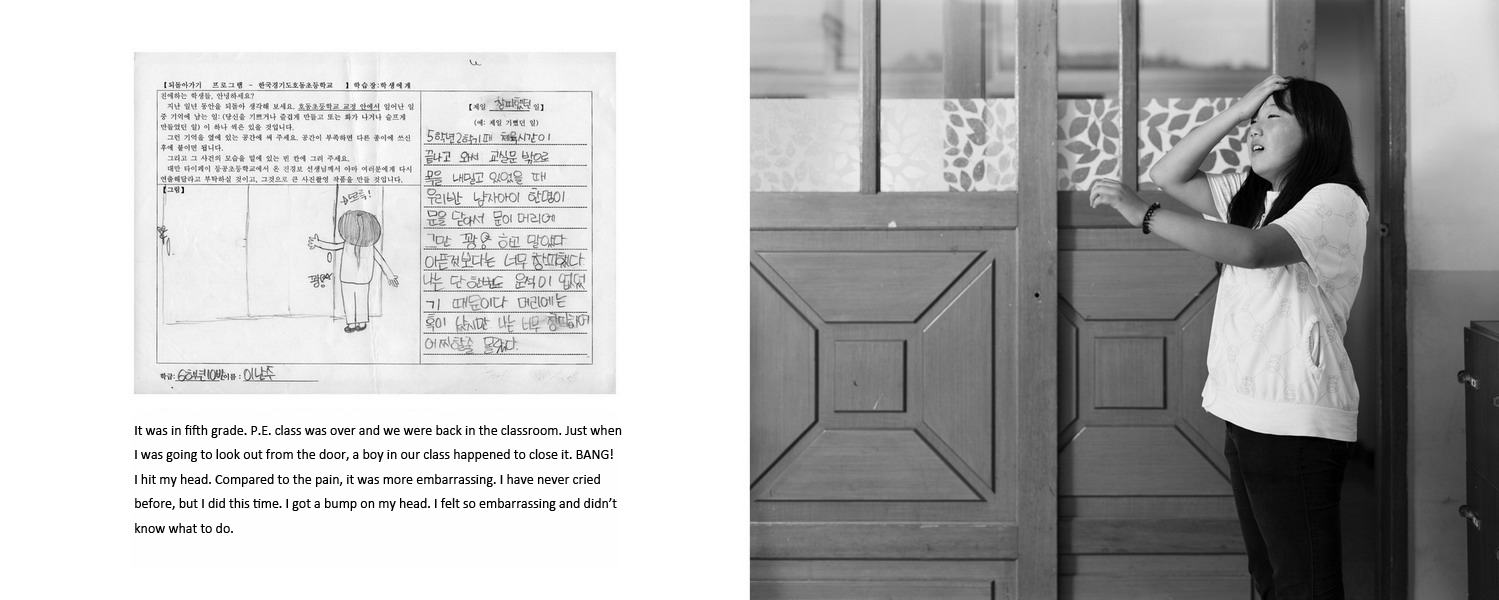 【되돌아가기 프로그램 - 한국경기도호동초등학교 】학습장:학생에게
친애하는 학생들, 안녕하세요?
지난 일년 동안을 되돌아 생각해 보세요. 호동초등학교 교정 안에서 일어난 일
중 기억에 남는 일: (당신을 기쁘거나 즐겁게 만들고 또는 화가 나거나 슬프게
만들었던 일) 이 하나 씩은 있을 것입니다.
그런 기억을 옆에 있는 공간에 써 주세요. 공간이 부족하면 다른 종이에 쓰신
후에 붙이면 됩니다.
그리고 그 사건의 모습을 밑에 있는 빈 칸에 그려 주세요.
대만 타이페이 동공초등학교에서 온 진경보 선생님께서 아마 여러분에게 다시
연출해달라고 부탁하실 것이고, 그것으로 큰 사진촬영 작품을 만들 것입니다.
【그림】
드르륵!
쾅
【제일 창피했던 일】
(예: 제일 기뻤던 일)
5학년 2학기 때 체육시간이
끝나고 와서 교실문 밖으로
목을 내밀고 있었을 때
우리반 남자아이 한명이
문을 닫아서 문이 머리에
그만 쾅 하고 말았다
아픈것보다는 너무 창피했다
나는 단 한번도 운적이 없었
기 때문이다 머리에는
혹이 났지만 나는 너무 창피하여
어찌할줄 몰랐다.
학급: 6학년10반 이름 : 이남주
It was in fifth grade. P.E. class was over and we were back in the classroom. Just when
I was going to look out from the door, a boy in our class happened to close it. BANG!
I hit my head. Compared to the pain, it was more embarrassing. I have never cried
before, but I did this time. I got a bump on my head. I felt so embarrassing and didn’t
know what to do.